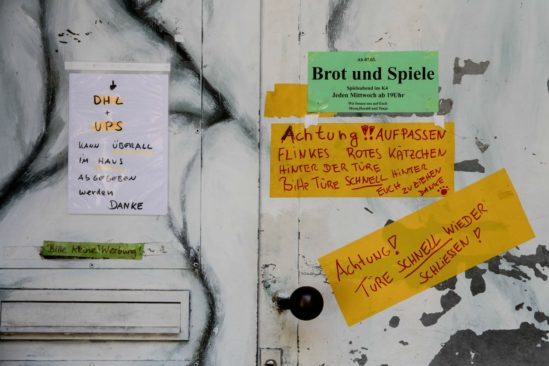 DHL
+
UPS
KANN ÜBERALL
IM HAUS
ABGEGEBEN
werden
DANKE
Bitte keine Werbung!
Ab 07.03.
Brot und Spiele
Spieleabend im K4
Jeden Mittwoch ab 19Uhr
Wir freuen uns auf Euch
Achtung!! AUFPASSEN
FLINKES ROTES KÄTZCHEN
HINTER DER TÜRE
Bitte TÜRE SCHNELL HINTER
EUCH ZUZIEHEN
DANKE
Achtung!
TÜRE SCHNELL WIEDER
SCHLIESSEN!